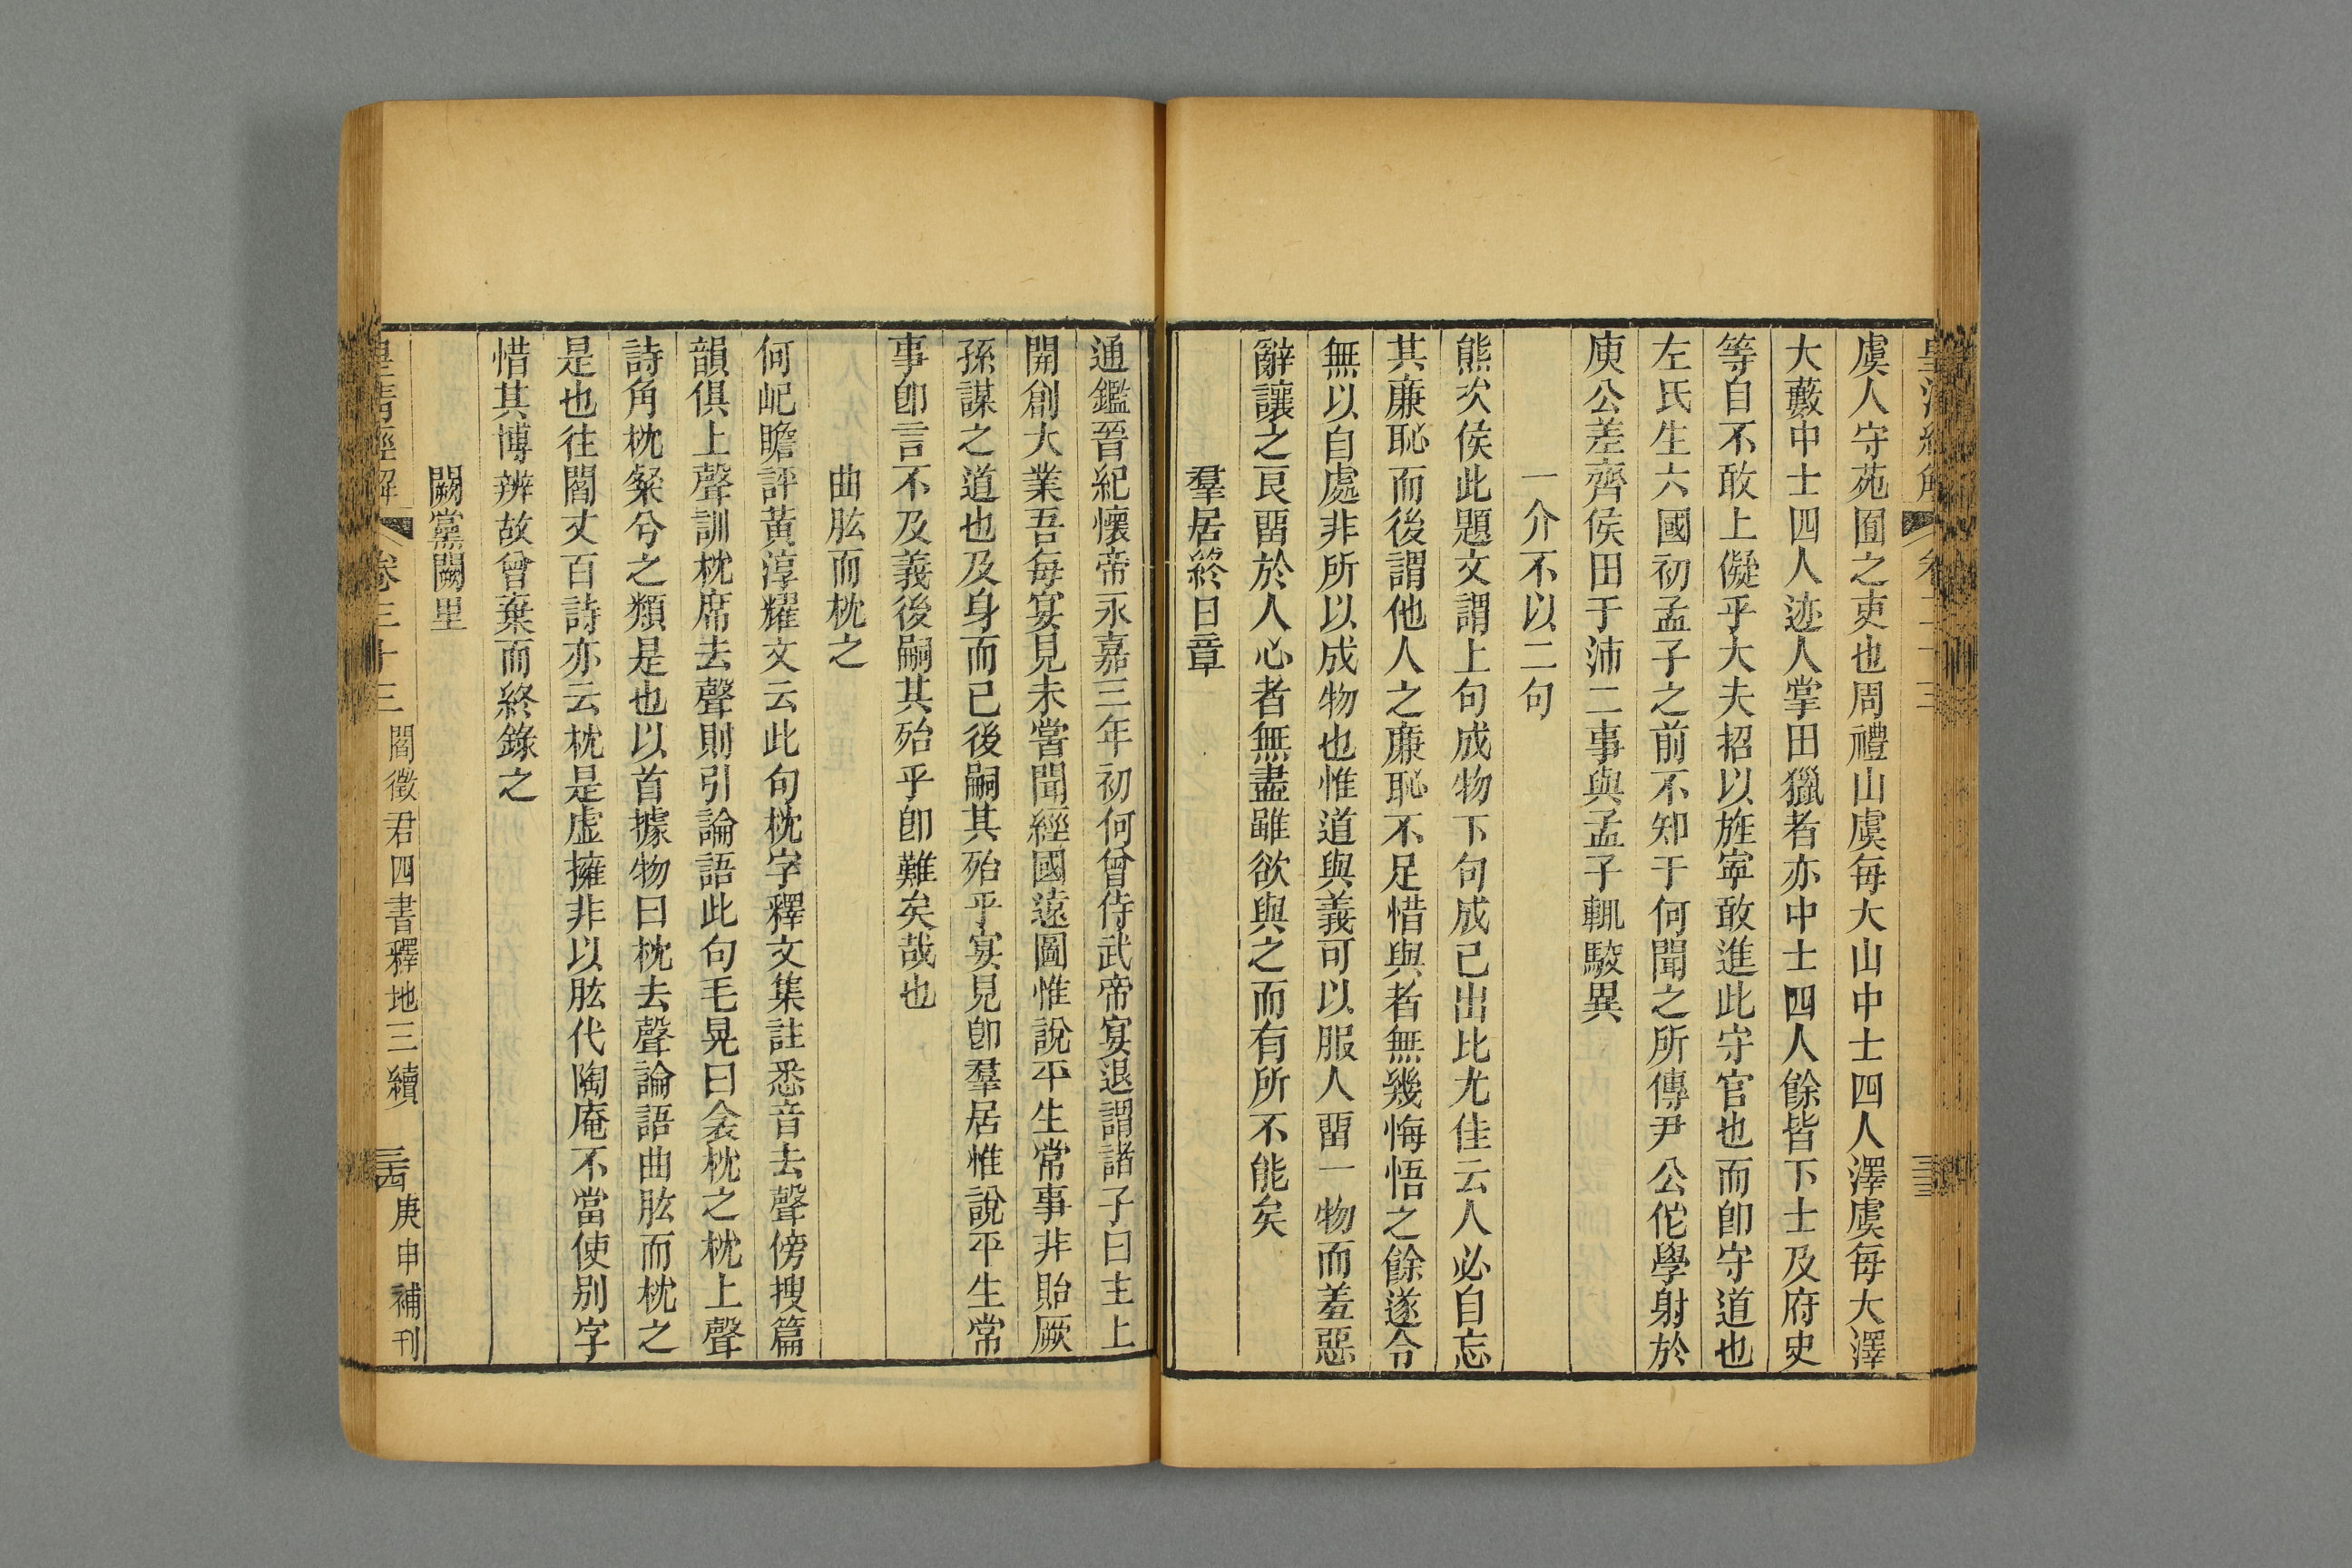 虞人守苑囿之吏也周禮山虞每大山中士四人澤虞每大澤
大藪中士四人迹人掌田獵者亦中士四人餘皆下士及府史
等自不敢上儗乎大夫招以旌寧敢進此守官也而卽守道也
左氏生六國初孟子之前不知于何聞之所傳尹公佗學射於
庾公差齊侯田于沛二事與孟子輒駮異
一介不以二句
熊次侯此題文謂上句成物下句成己出比尤佳云人必自忘
其廉恥而後謂他人之廉恥不足惜與者無幾悔悟之餘遂令
無以自處非所以成物也惟道與義可以服人畱一物而羞惡
辭讓之良畱於人心者無盡雖欲與之而有所不能矣
羣居終日章
通鑑晉紀懷帝永嘉三年初何曾侍武帝宴退謂諸子曰主上
開創大業吾每宴見未嘗聞經國遠圖惟說平生常事非貽厥
孫謀之道也及身而已後嗣其殆乎宴見卽羣居惟說平生常
事卽言不及義後嗣其殆乎卽難矣哉也
曲肱而枕之
何屺瞻評黃淳耀文云此句枕字釋文集註悉音去聲傍搜篇
韻俱上聲訓枕席去聲則引論語此句毛晃曰衾枕之枕上聲
詩角枕粲兮之類是也以首據物曰枕去聲論語曲肱而枕之
是也往閻丈百詩亦云枕是虛擁非以肱代陶庵不當使別字
惜其博辨故曾棄而終錄之
闕黨闕里
皇清經解 卷三十三 閻徵君四書釋地三續 三古 庚申補刊